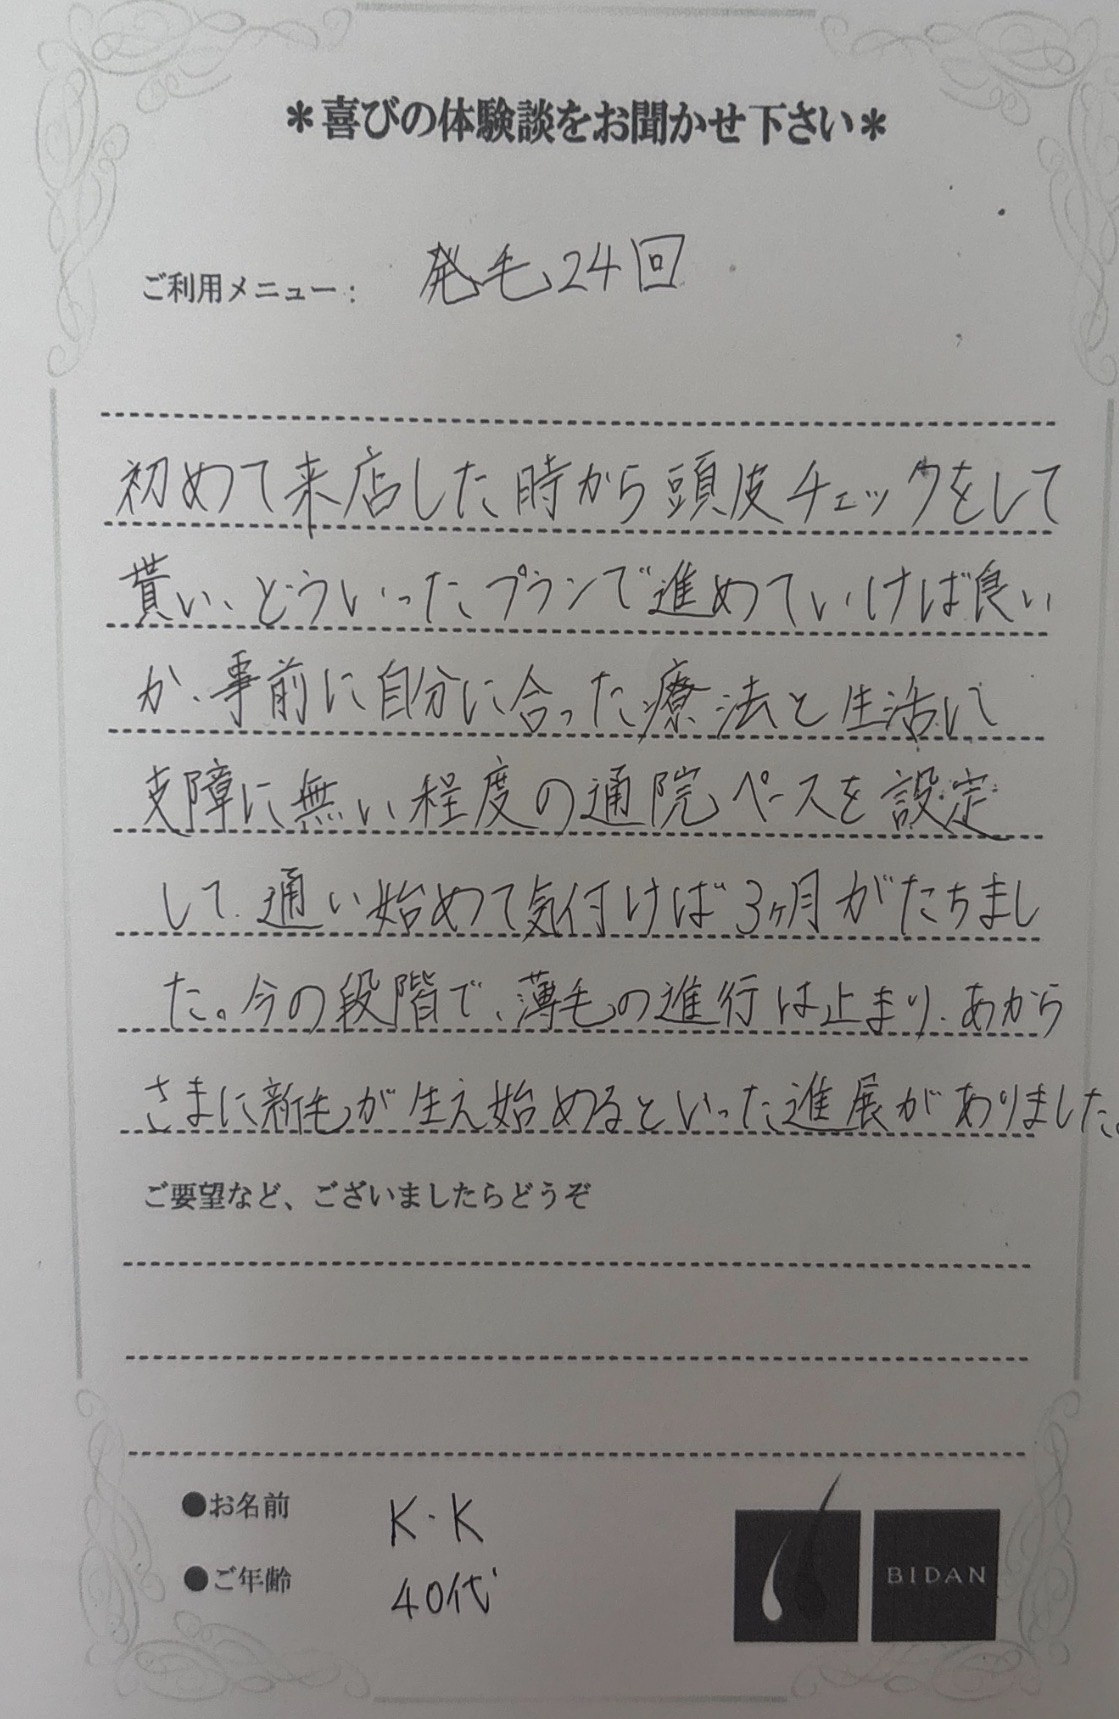 ＊喜びの体験談をお聞かせ下さい＊
ご利用メニュー： 発毛24回
初めて来店した時から頭皮チェックをして
貰い、どういったプランで進めていけば良い
か、事前に自分に合った療法と生活に
支障に無い程度の通院ペースを設定
して、通い始めて気付けば3ヶ月がたちまし
た。今の段階で、薄毛の進行は止まり、あから
さまに新毛が生え始めるといった進展がありました。
ご要望など、ございましたらどうぞ
●お名前 K・K
●ご年齢 40代
BIDAN